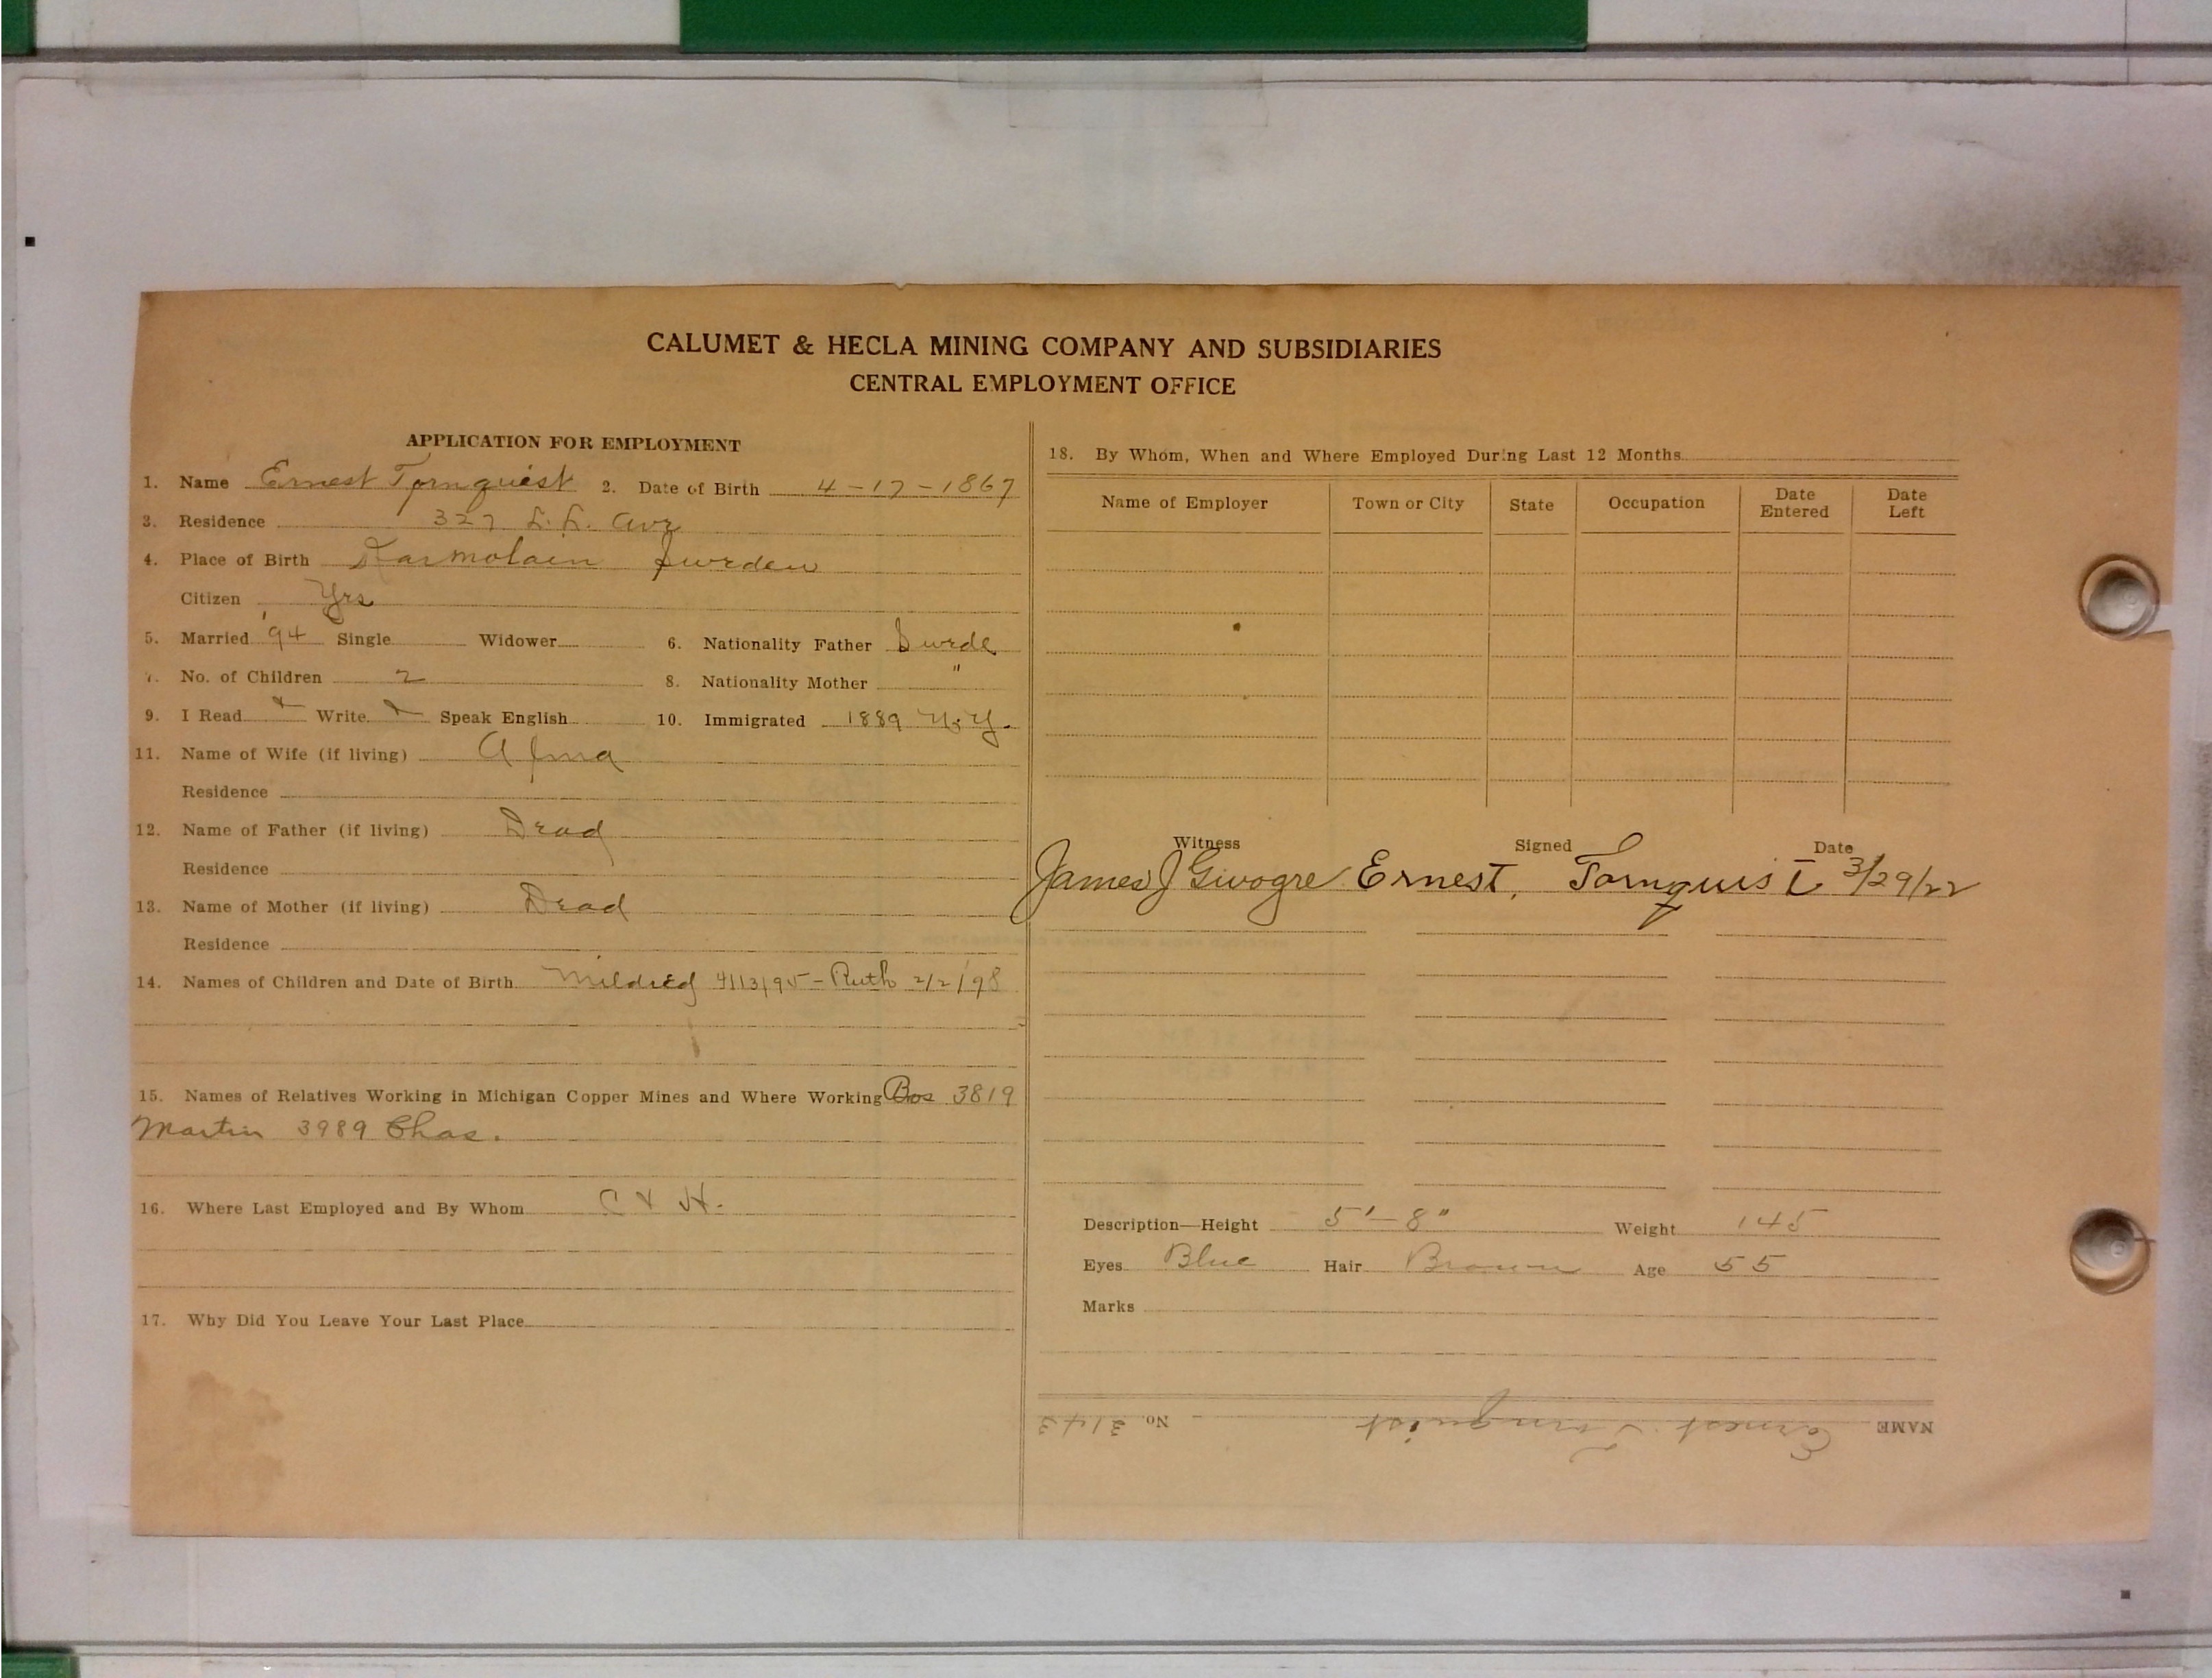 CALUMET & HECLA MINING COMPANY AND SUBSIDIARIES
CENTRAL EMPLOYMENT OFFICE
APPLICATION FOR EMPLOYMENT
1. Name Ernest Tornquist 2. Date of Birth 4-17-1867
3. Residence 327 L.L. Ave
4. Place of Birth Sweden
Citizen Yes
5. Married '94 Single Widower 6. Nationality Father Swede
7. No. of Children 2 8. Nationality Mother "
9. I Read Write Speak English 10. Immigrated 1889 N.Y.
11. Name of Wife (if living) Alma
Residence
12. Name of Father (if living) Dead
Residence
13. Name of Mother (if living) Dead
Residence
14. Names of Children and Date of Birth Mildred 4/13/95 - Ruth 2/2/98
15. Names of Relatives Working in Michigan Copper Mines and Where Working Bos 3819
Martin 3989 Chas.
16. Where Last Employed and By Whom C & H.
17. Why Did You Leave Your Last Place
18. By Whom, When and Where Employed During Last 12 Months
Name of Employer Town or City State Occupation Date Entered Date Left
Witness Signed Date
James J Ernest, Tornquist 3/29/22
Description—Height 5'-8" Weight 145
Eyes Blue Hair Brown Age 55
Marks
NAME Ernest Tornquist No. 3143